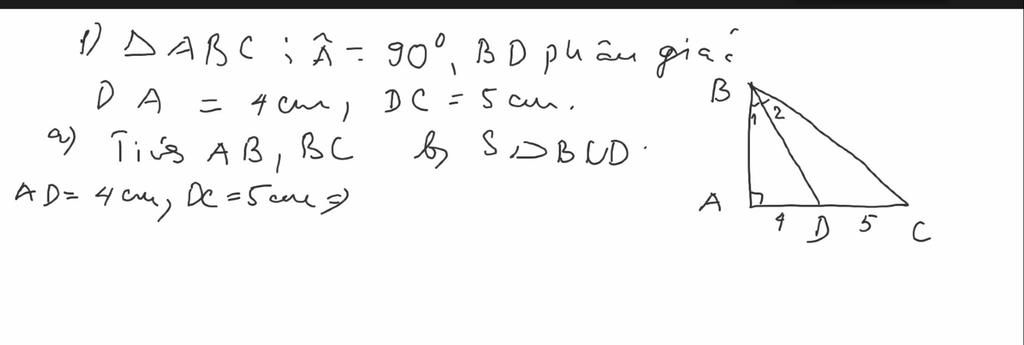 1) △ABC ; Â = 90°, BD phân giác
DA = 4cm, DC = 5cm.
a) Tính AB, BC b) S△BCD.
AD = 4cm, DC = 5cm ⇒
B
1 2
A 4 D 5 C